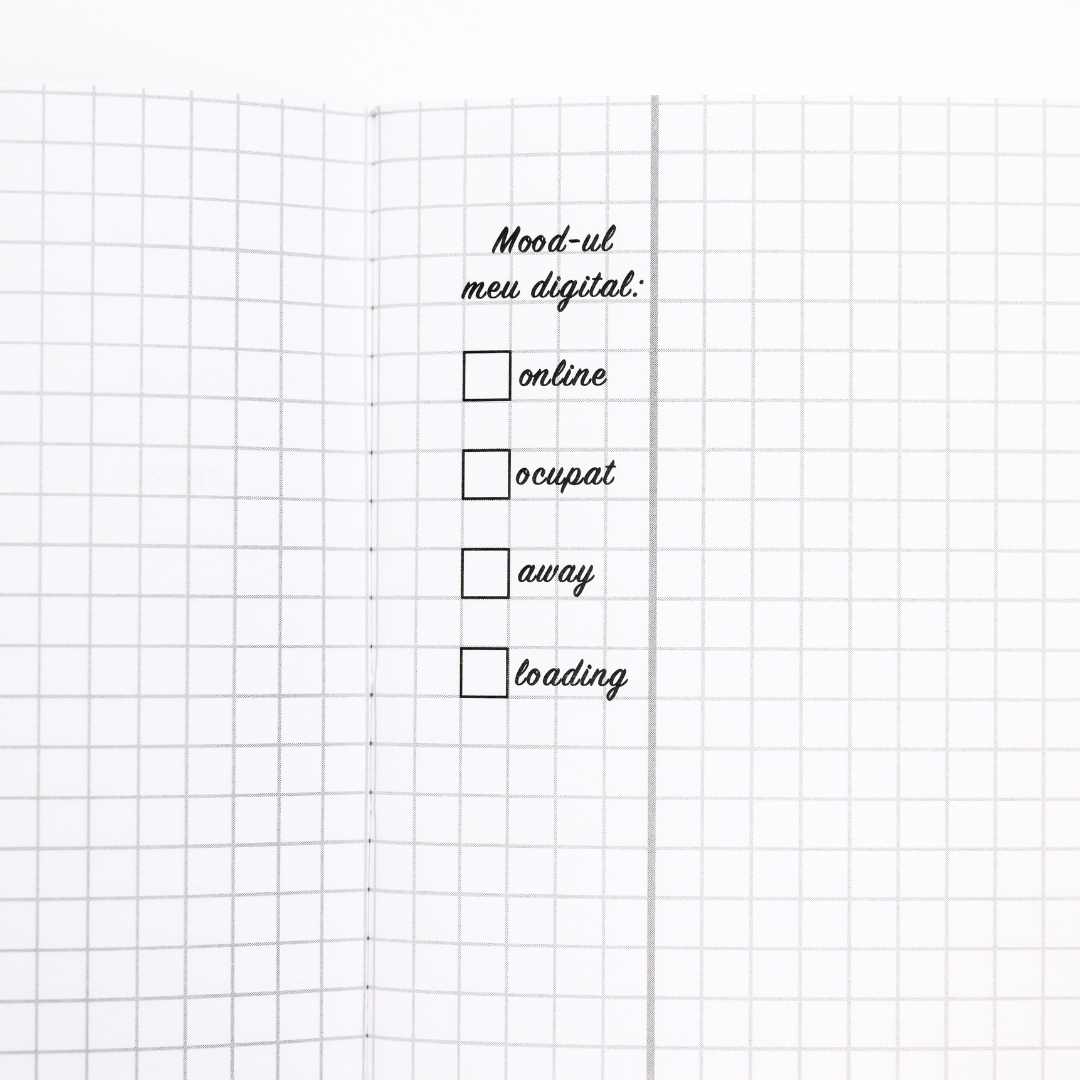 Mood-ul
meu digital:
online
ocupat
away
loading